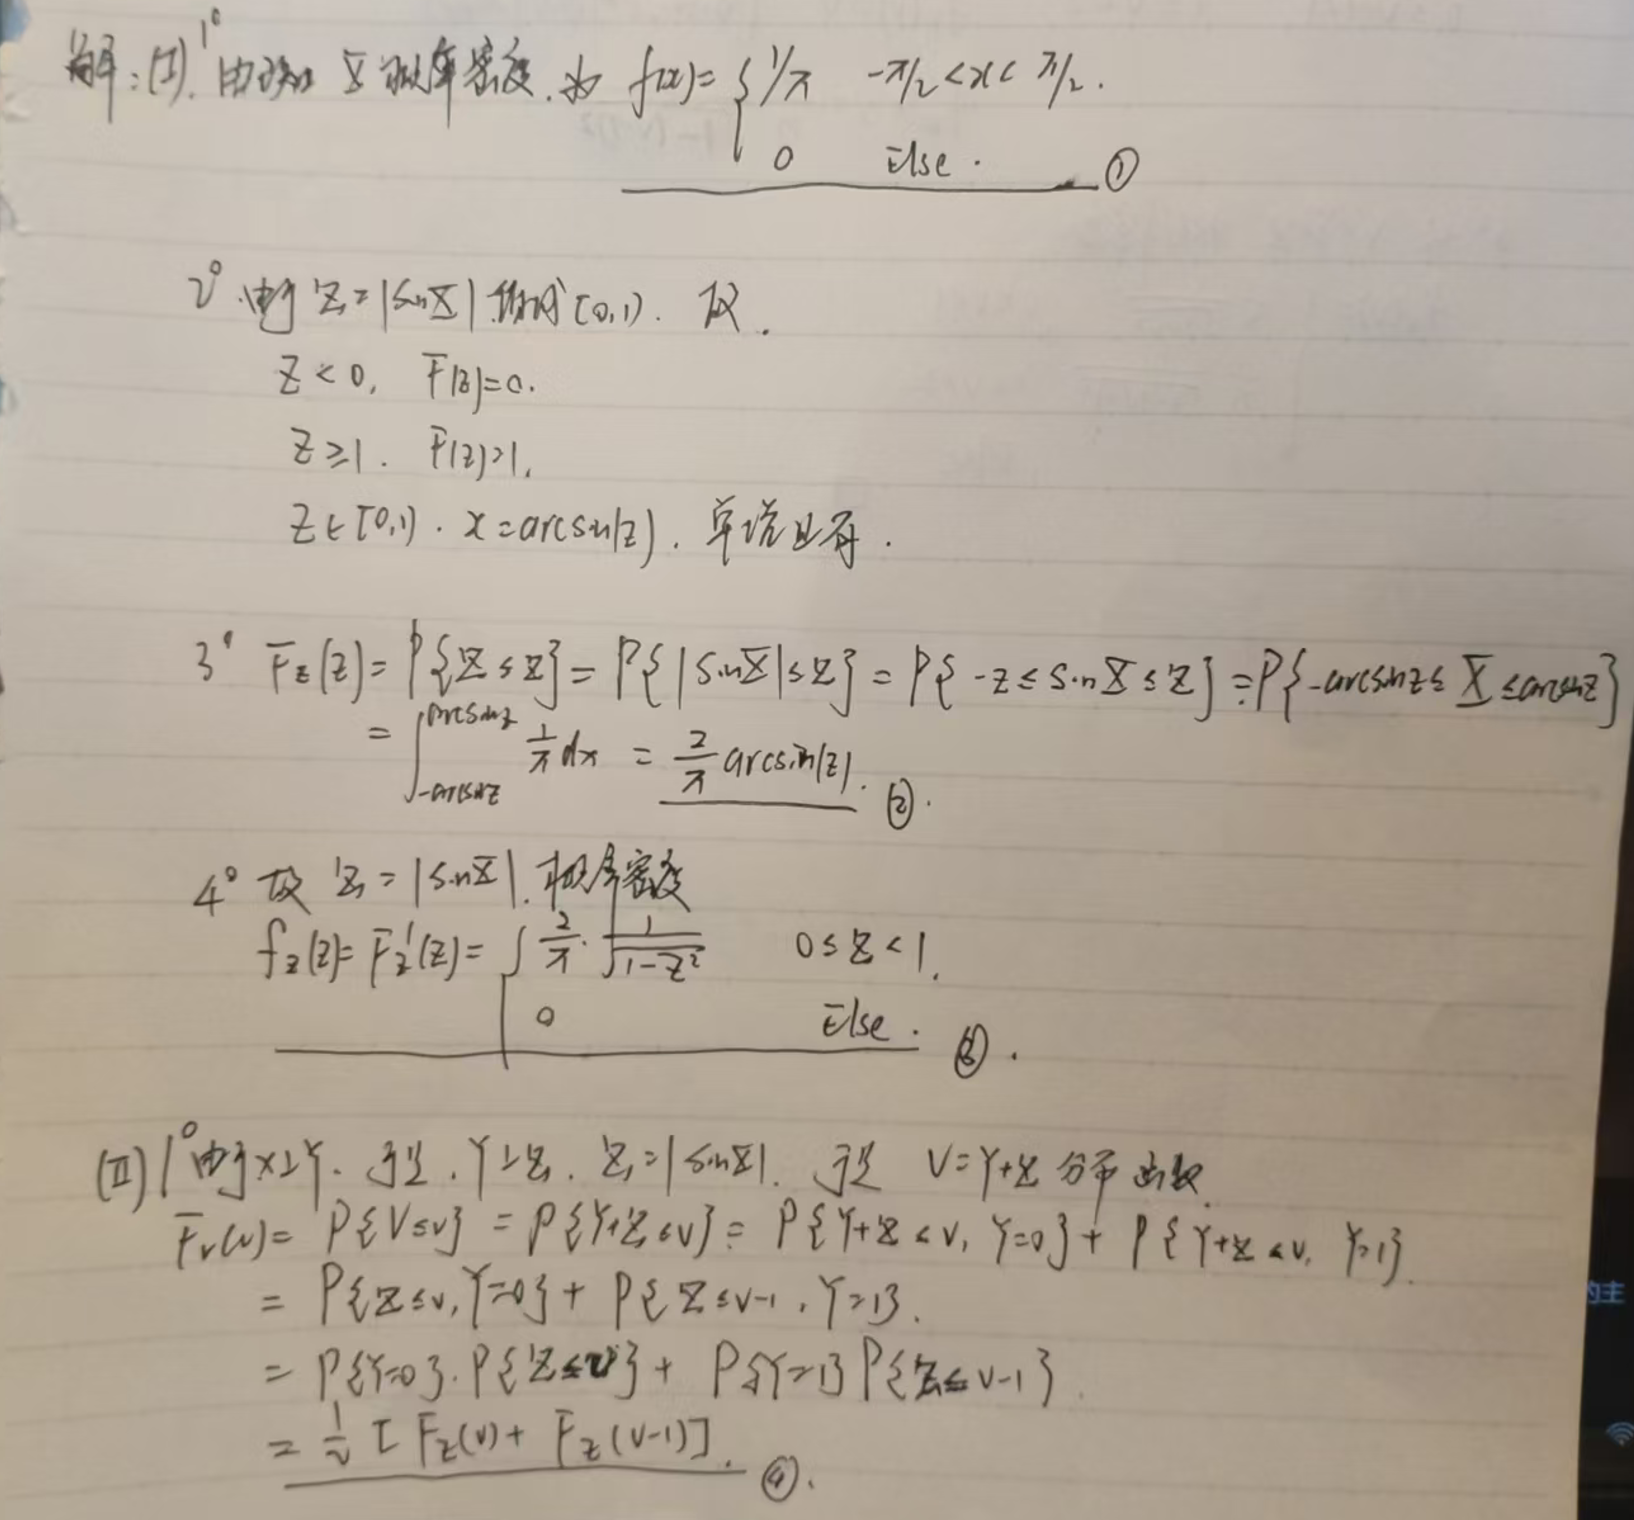 解：(I). 1° 由题知 X 概率密度为 f(x)= { 1/π  -π/2 < x < π/2.
0  Else. ①
2° 由于 Z=|sinX| 值域 [0,1). 故.
z < 0, F(z)=0.
z ≥ 1. F(z)=1.
z ∈ [0,1). x = arcsin(z). 单增且有.
3° Fz(z) = P{Z ≤ z} = P{|sinX| ≤ z} = P{-z ≤ sinX ≤ z} = P{-arcsinz ≤ X ≤ arcsinz}
= ∫_{-arcsinz}^{arcsinz} 1/π dx = 2/π arcsin(z). ②.
4° 故 Z = |sinX|. 概率密度
fz(z) = Fz'(z) = { 2/π · 1/√(1-z²)  0 ≤ z < 1.
0  Else. ③.
(II) 1° 由于 X⊥Y. 于是. Y⊥Z. Z=|sinX|. 于是 V=Y+Z 分布函数.
Fv(v) = P{V ≤ v} = P{Y+Z ≤ v} = P{Y+Z ≤ v, Y=0} + P{Y+Z ≤ v, Y=1}.
= P{Z ≤ v, Y=0} + P{Z ≤ v-1, Y=1}.
= P{Y=0}. P{Z ≤ v} + P{Y=1} P{Z ≤ v-1}.
= 1/2 [Fz(v) + Fz(v-1)]. ④.
的主